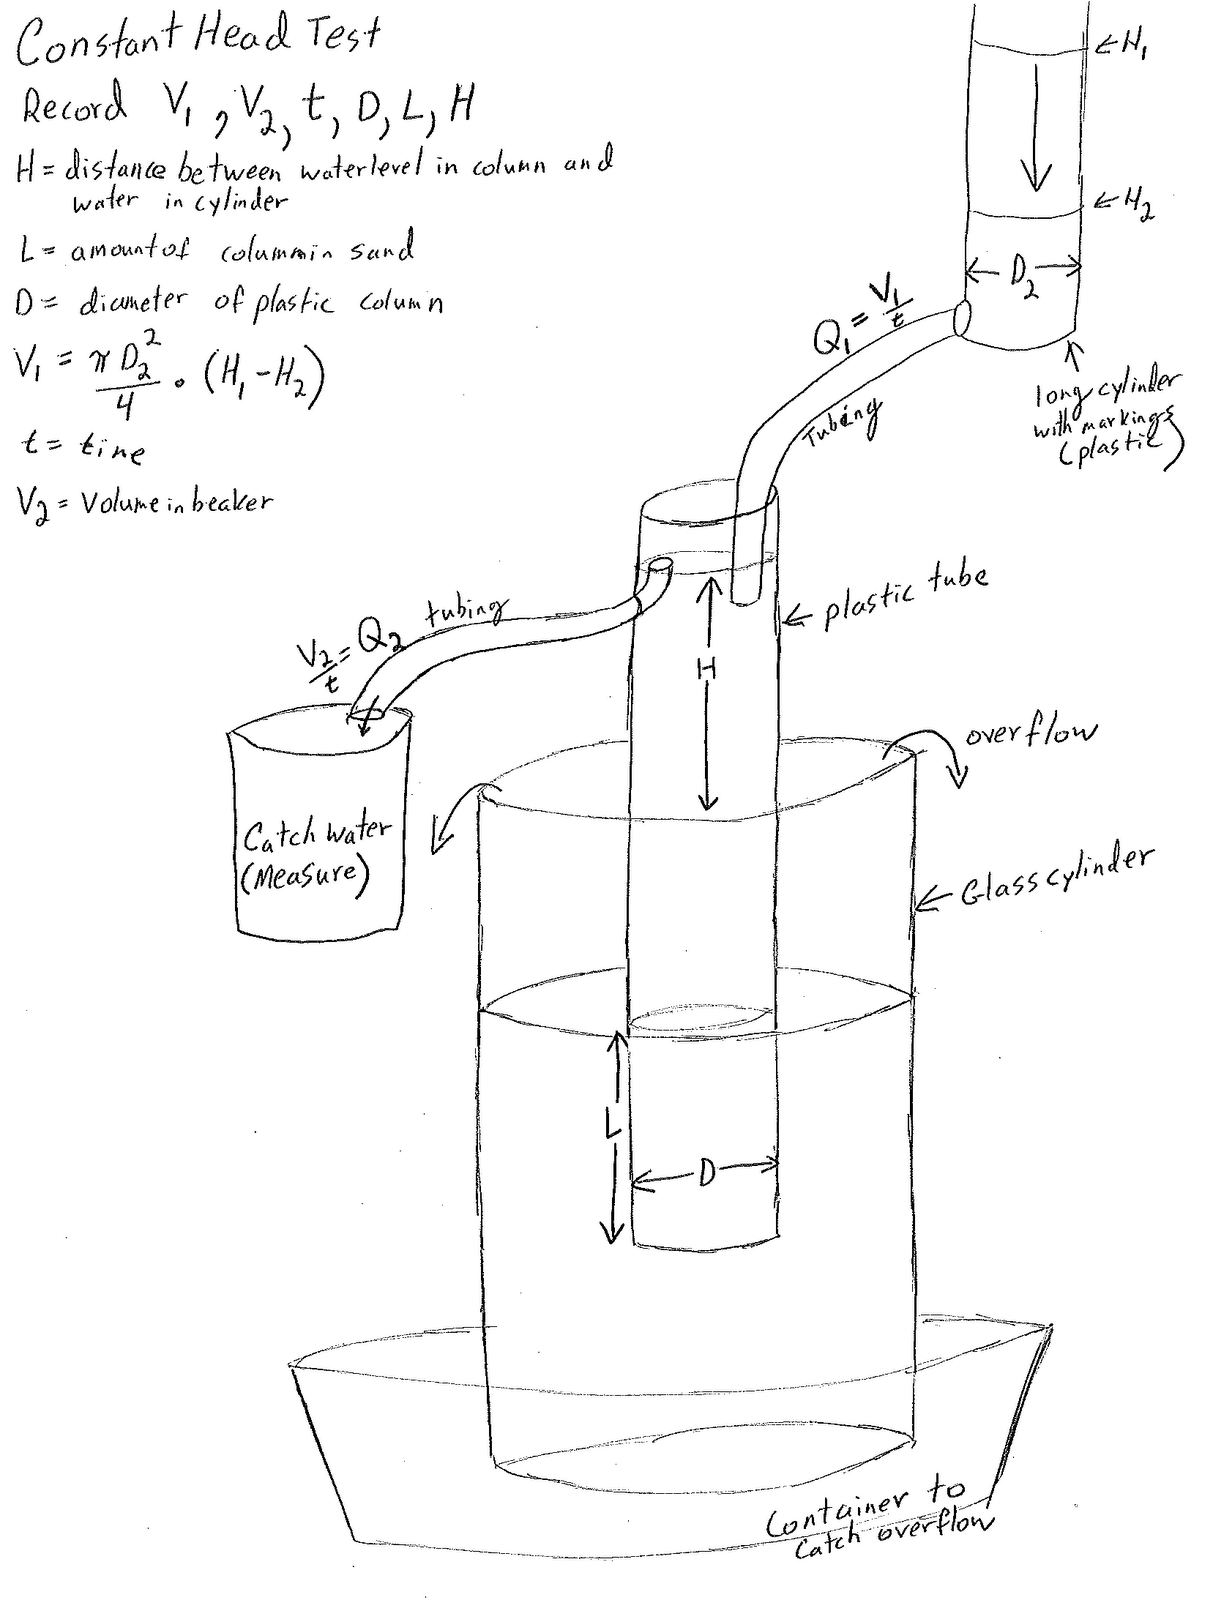 Constant Head Test
Record V₁, V₂, t, D, L, H
H = distance between water level in column and
water in cylinder
L = amount of column in sand
D = diameter of plastic column
V₁ = πD₂²/4 · (H₁-H₂)
t = time
V₂ = Volume in beaker
←H₁
←H₂
D₂
Q₁ = V₁/t
Tubing
long cylinder
with markings
(plastic)
plastic tube
V₂/t = Q₂
tubing
H
overflow
Catch water
(Measure)
Glass cylinder
L
D
Container to
Catch overflow